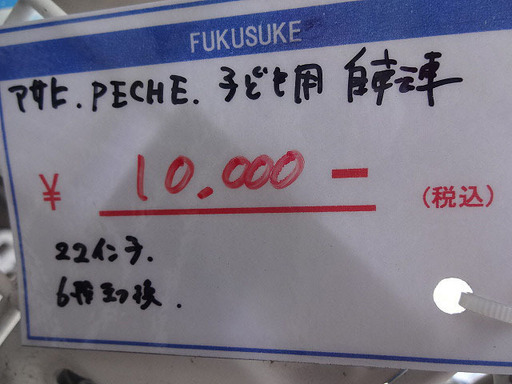 FUKUSUKE
アサヒ. PECHE. 子ども用 自転車
¥ 10,000 - (税込)
22インチ.
6段切換.